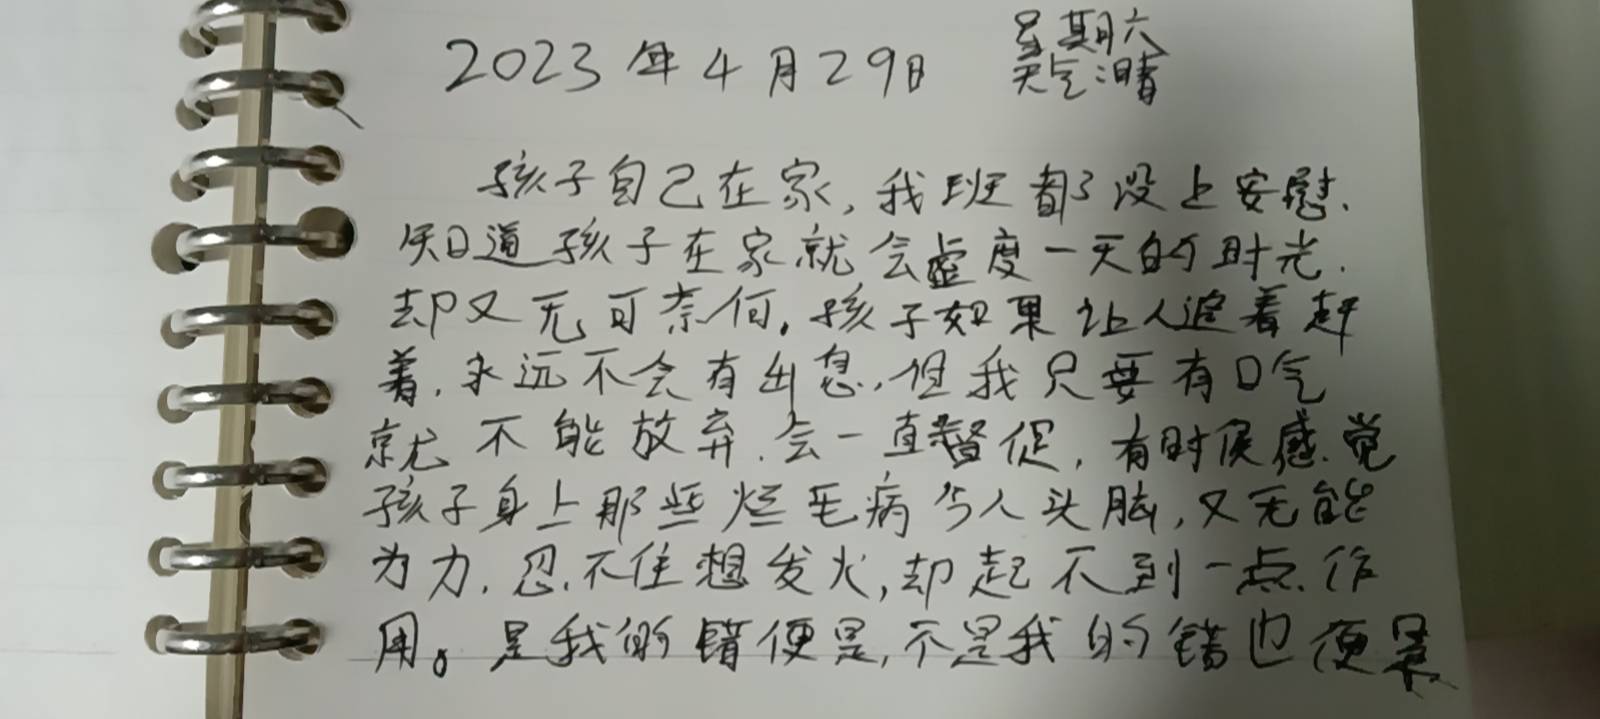 2023年4月29日
星期六
天气:晴
孩子自己在家,我班都没上安慰.
知道孩子在家就会虚度一天的时光.
却又无可奈何。孩子如果让人追着赶
着.永远不会有出息,但我只要有口气
就不能放弃.会一直督促,有时候感觉
孩子身上那些烂毛病令人头脑,又无能
为力.忍不住想发火,却起不到一点作
用。是我的错便是,不是我的错也便是